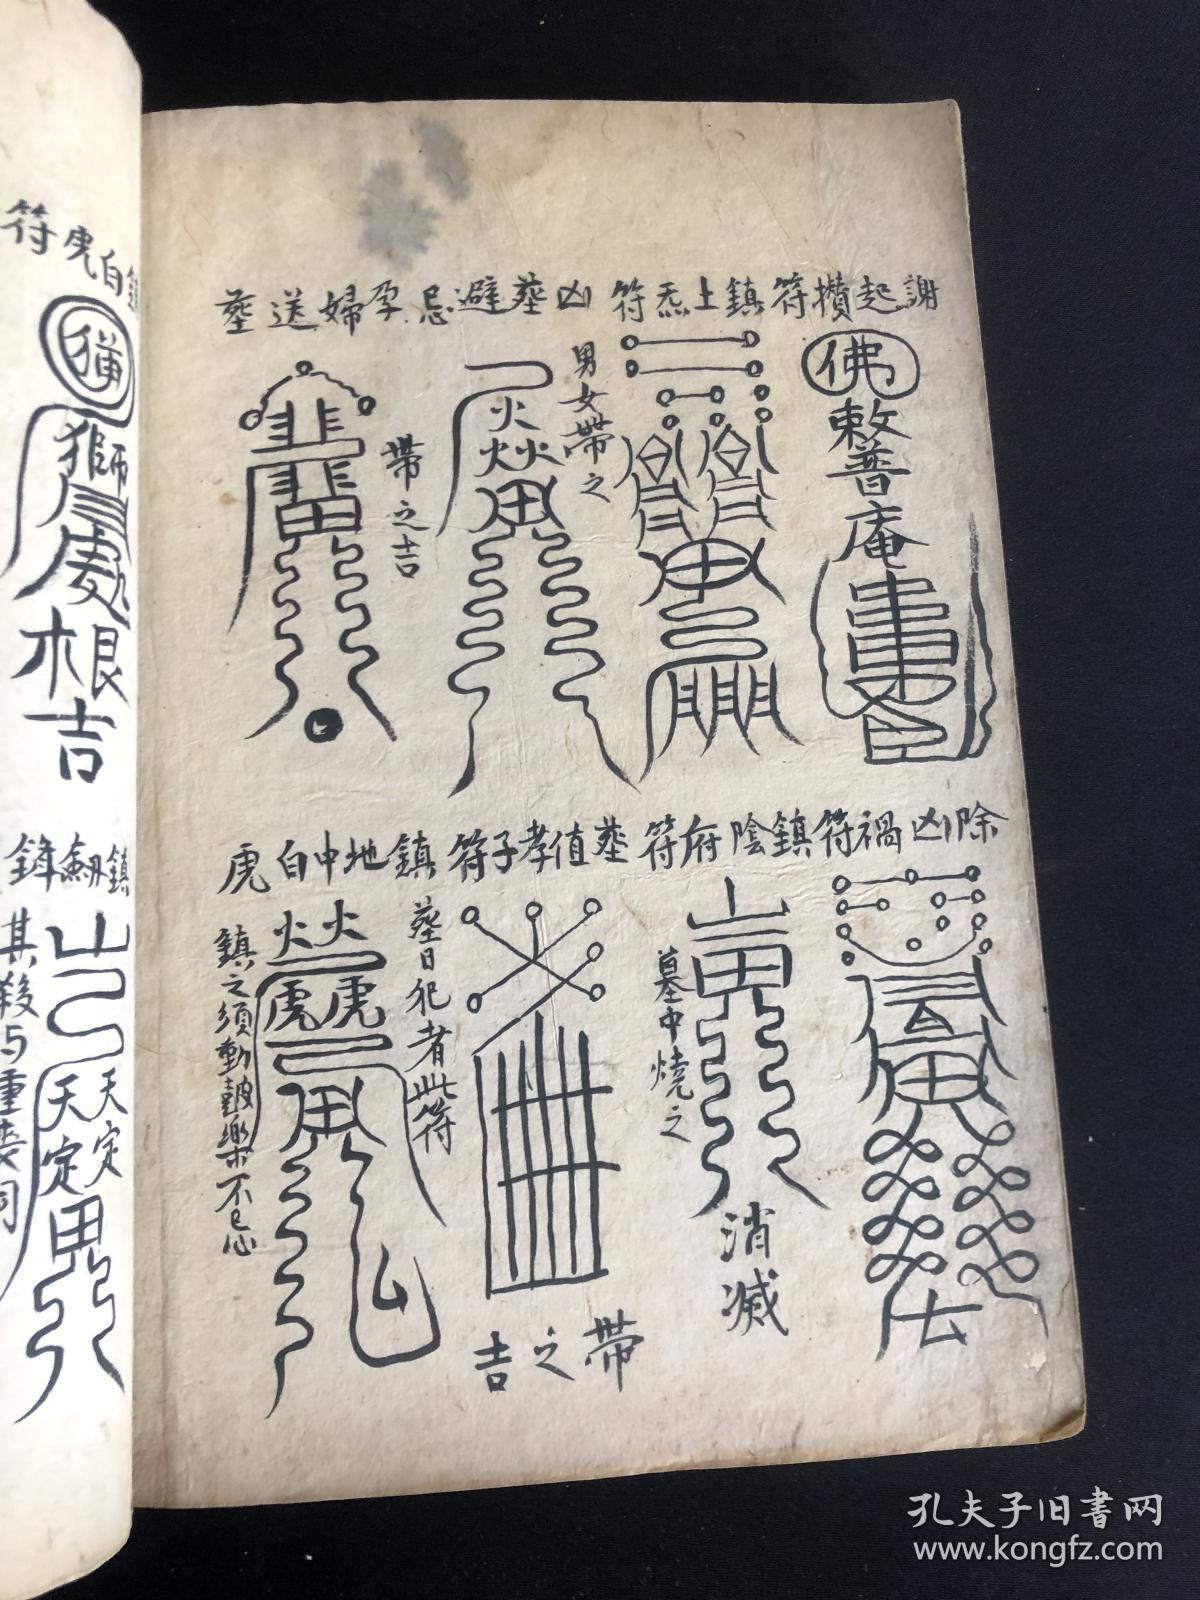 謝起攢符鎮土炁符凶葬避忌孕婦送葬
佛
敕普庵
男女帶之
帶之吉
除凶禍符鎮陰府符葬值孝子符鎮地中白虎
墓中燒之
消滅
帶之吉
葬日犯者此符
鎮之須動鼓樂不忌
鎮白虎符
根吉
鎮劔鋒
其殺与重喪同
孔夫子旧书网
www.kongfz.com